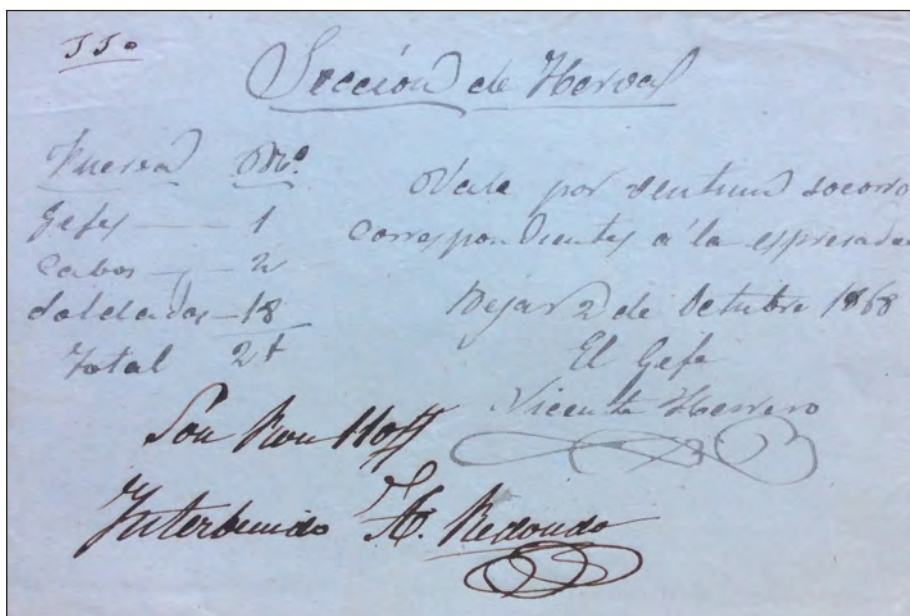 Sección de Herval
Fuerza Nº.
Gefes — 1
Cabos — 2
Soldados — 18
Total 21
Vale por ventiun socorro
correspondientes á la espresada
Bejar 2 de Octubre 1868
El Gefe
Vicente Herrero
Son
Interbenido H. Redondo